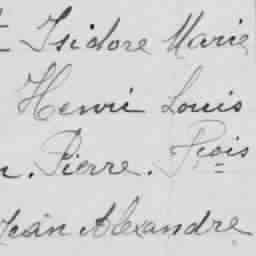 Isidore Marie
Henri Louis
n. Pierre. Frois
Jean Alexandre